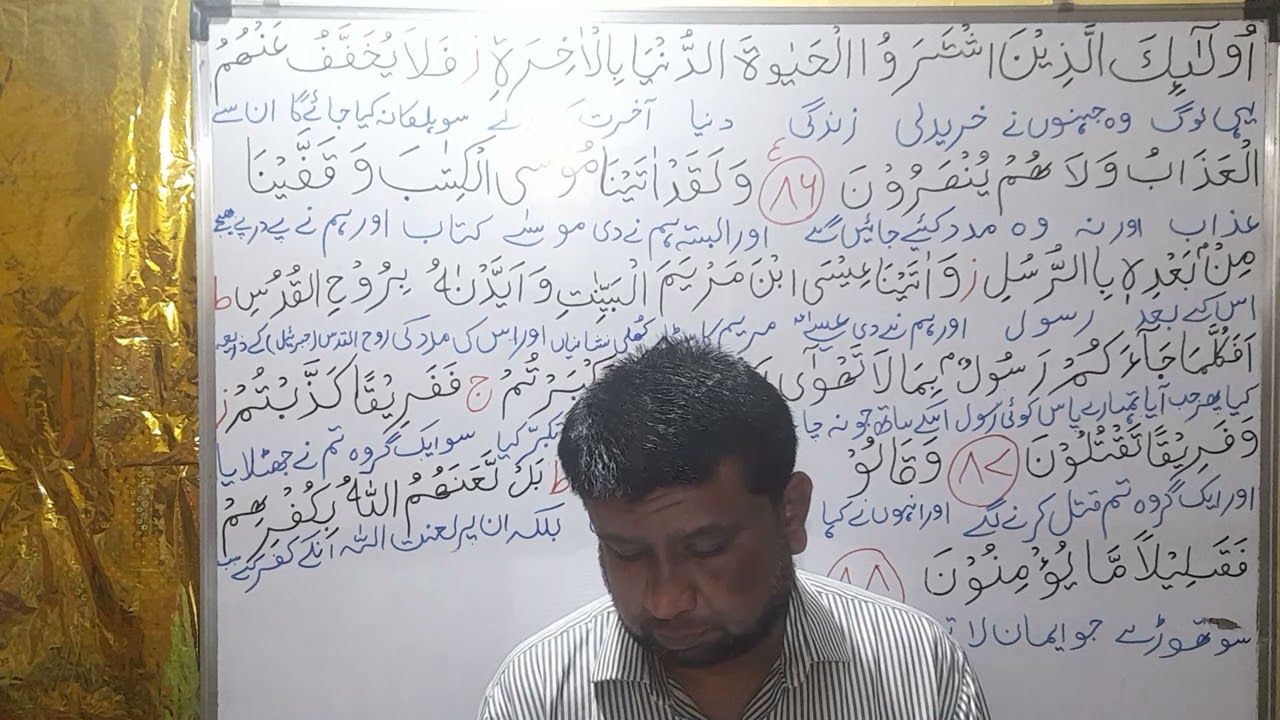 اُولٰٓئِكَ الَّذِيْنَ اشْتَرَوُا الْحَيٰوةَ الدُّنْيَا بِالْاٰخِرَةِ ز فَلَا يُخَفَّفُ عَنْهُمُ
یہی لوگ وہ جنہوں نے خریدلی زندگی دنیا آخرت کے سو ہلکا نہ کیا جائے گا ان سے
الْعَذَابُ وَلَا هُمْ يُنْصَرُوْنَ ٨٦ ع وَلَقَدْ اٰتَيْنَا مُوْسَى الْكِتٰبَ وَ قَفَّيْنَا
عذاب اور نہ وہ مدد کیئے جائیں گے اور البتہ ہم نے دی موسیٰ کتاب اور ہم نے پے درپے بھیجے
مِنْۢ بَعْدِهٖ بِالرُّسُلِ ز وَاٰتَيْنَا عِيْسَى ابْنَ مَرْيَمَ الْبَيِّنٰتِ وَاَيَّدْنٰهُ بِرُوْحِ الْقُدُسِ ط
اس کے بعد رسول اور ہم نے دی عیسےٰ مریم کا کھلی نشانیاں اور اس کی مدد کی روح القدس (جبرئیل) کے ذریعہ
اَفَكُلَّمَا جَآءَ كُمْ رَسُوْلٌۢ بِمَا لَا تَهْوٰٓى كْبَرْتُمْ ج فَفَرِيْقًا كَذَّبْتُمْ ز
کیا پھر جب آیا تمہارے پاس کوئی رسول اسکے ساتھ جو نہ چا تکبر کیا سو ایک گروہ تم نے جھٹلایا
وَفَرِيْقًا تَقْتُلُوْنَ ٨٧ وَقَالُوْ ط بَلْ لَّعَنَهُمُ اللّٰهُ بِكُفْرِهِمْ
اور ایک گروہ تم قتل کرنے لگے اور انہوں نے کہا بلکہ ان پر لعنت اللہ انکے کفر کے سبب
فَقَلِيْلًا مَّا يُؤْمِنُوْنَ ٨٨
سو تھوڑے جو ایمان لا